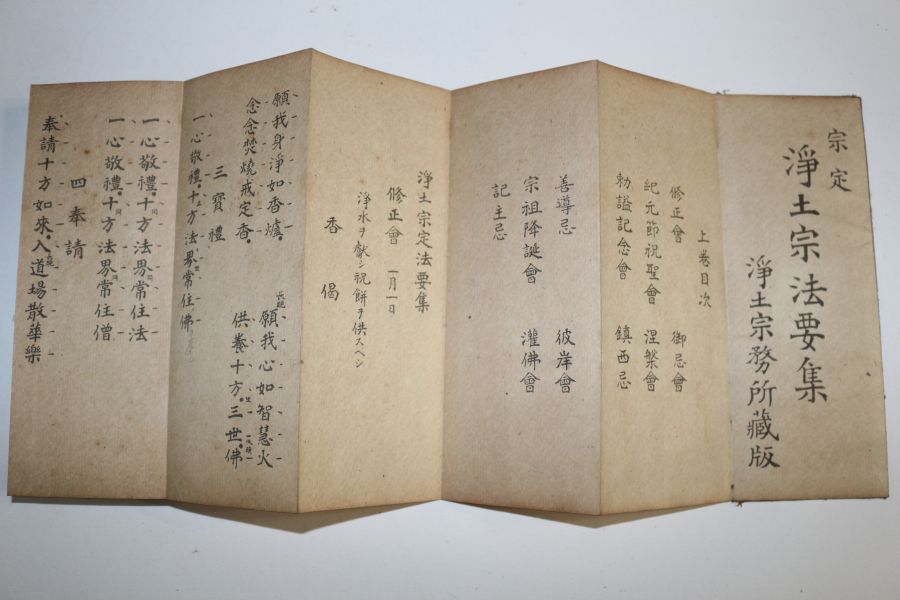 宗定
淨土宗法要集
淨土宗務所藏版
上卷目次
修正會 御忌會
紀元節祝聖會 涅槃會
勅謚記念會 鎮西忌
善導忌 彼岸會
宗祖降誕會 灌佛會
記主忌
淨土宗定法要集
修正會 一月一日
淨水ヲ獻シ祝餅ヲ供スヘシ
香偈
願我身淨如香爐 願我心如智慧火
念念焚燒戒定香 供養十方三世佛
三寶禮
一心敬禮十方法界常住佛
一心敬禮十方法界常住法
一心敬禮十方法界常住僧
四奉請
奉請十方如來入道場散華樂